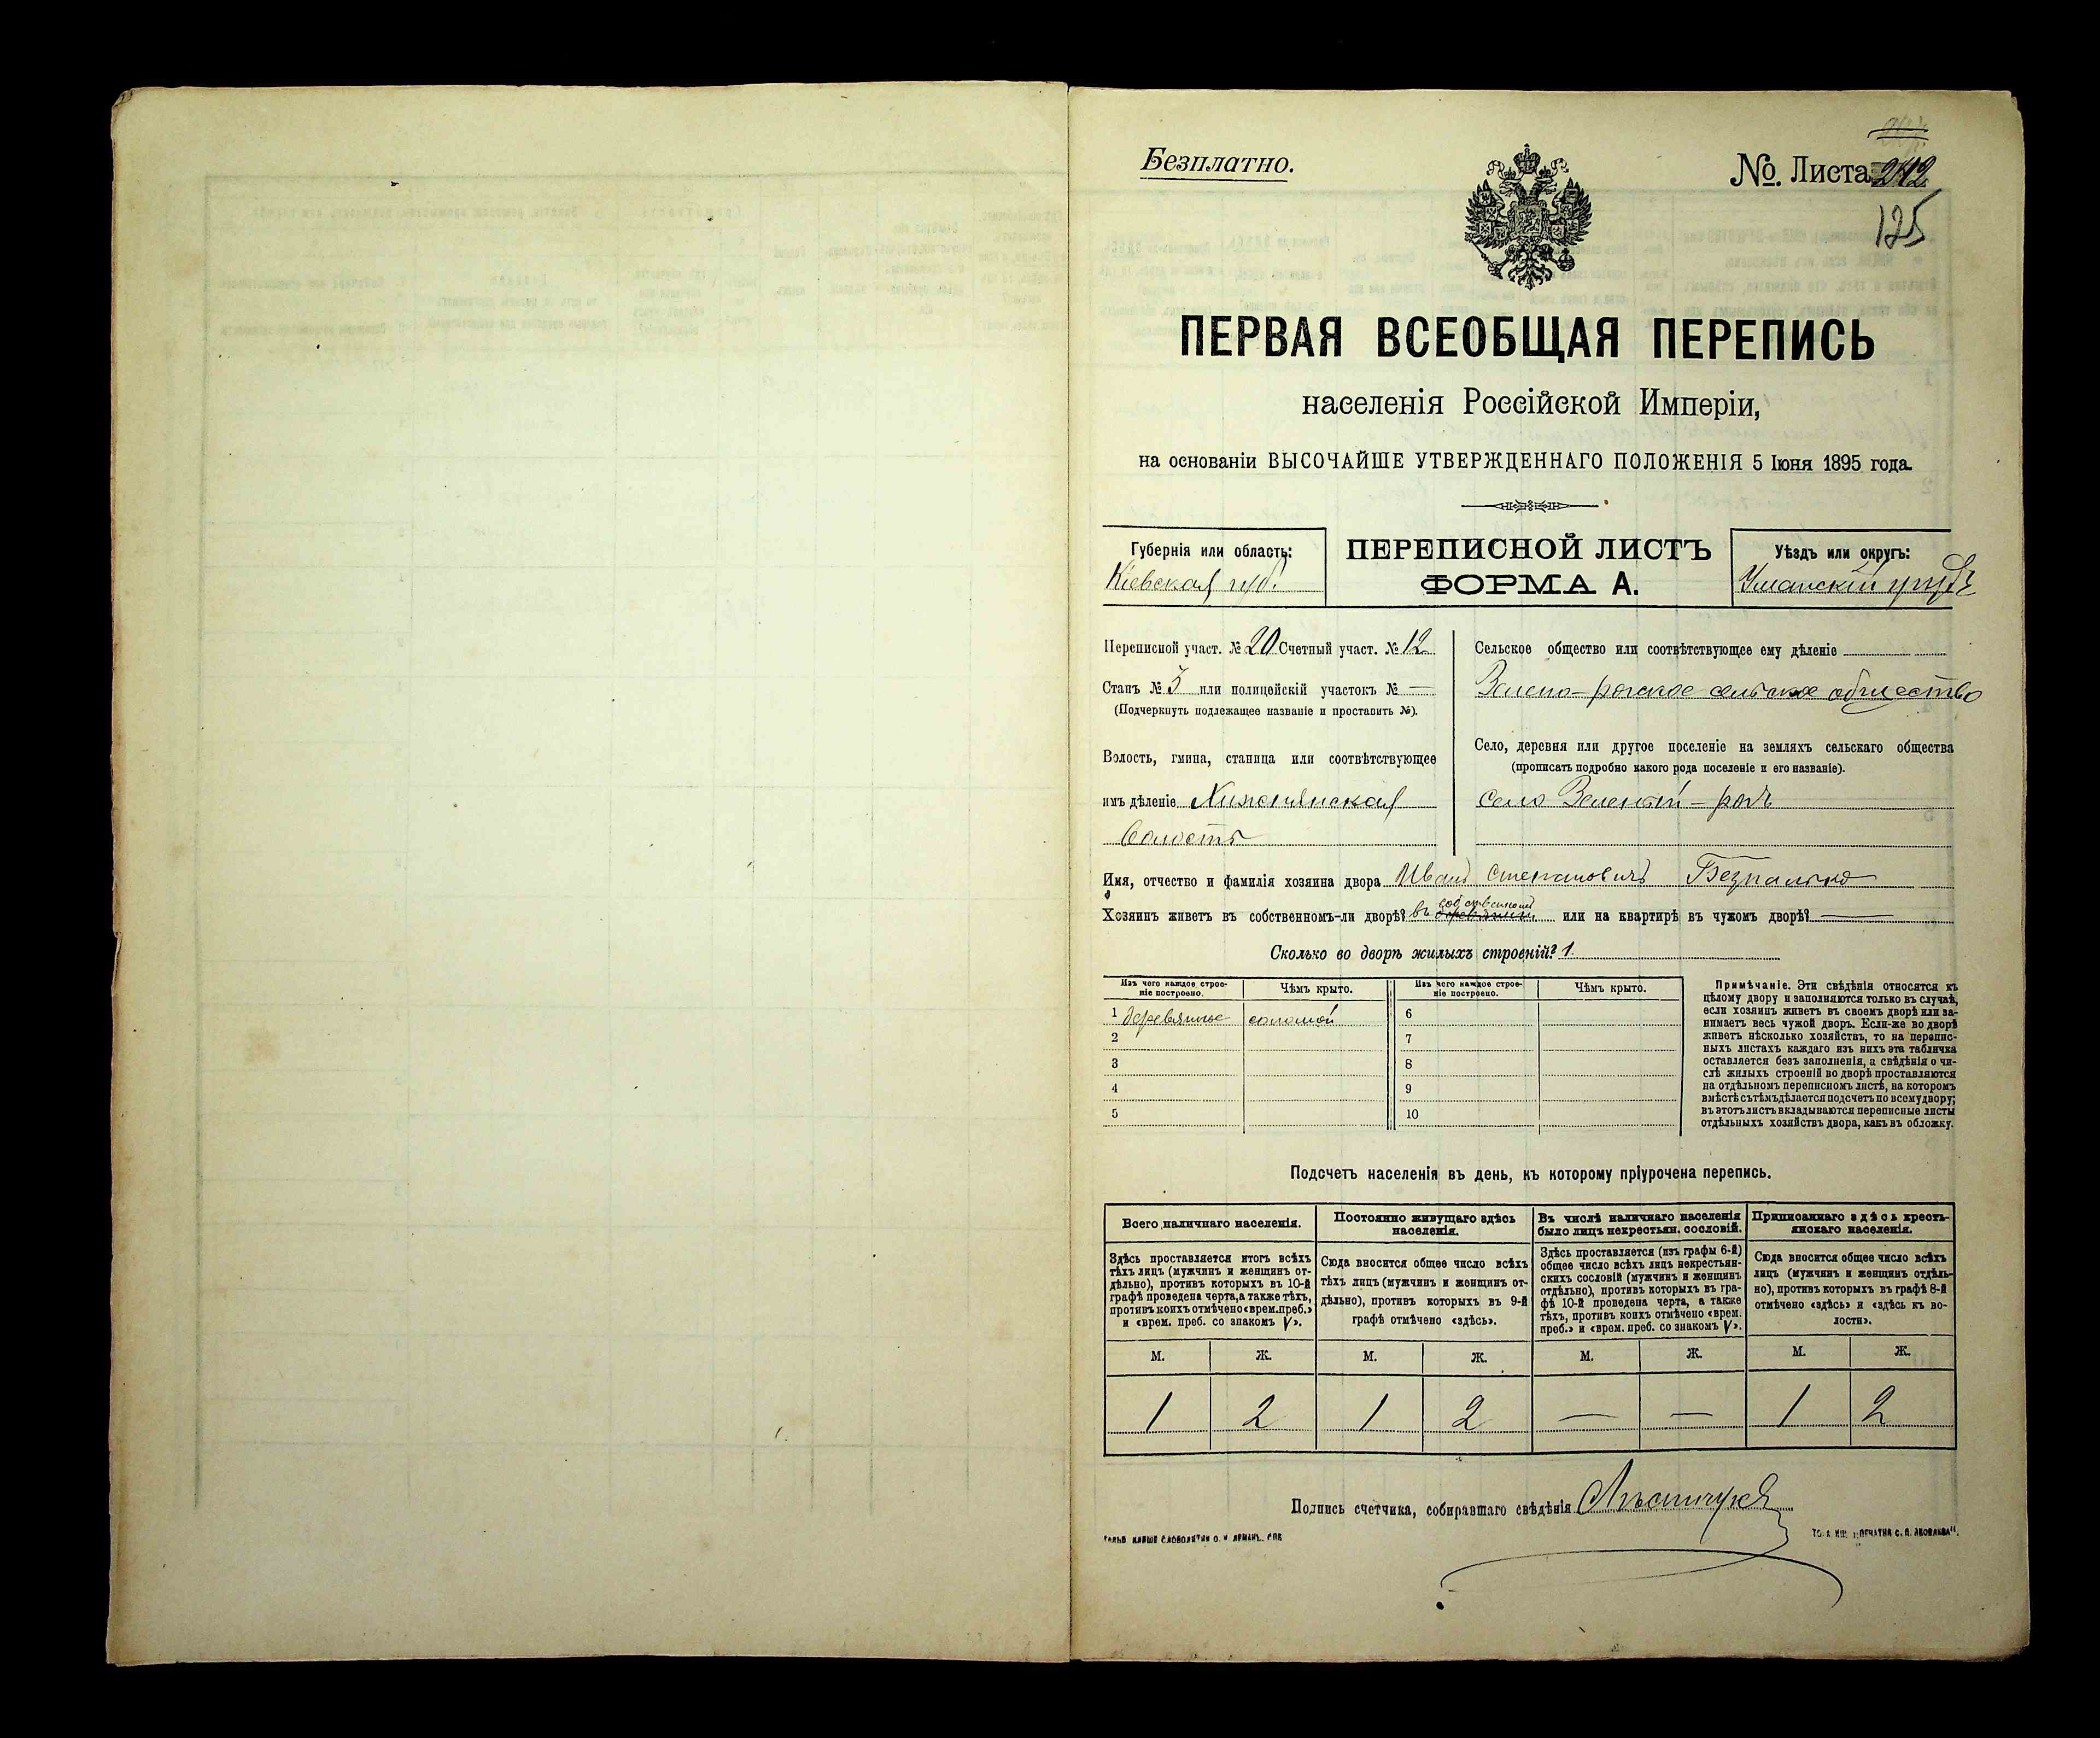 Безплатно.
№. Листа 242
125
ПЕРВАЯ ВСЕОБЩАЯ ПЕРЕПИСЬ
населенія Россійской Имперіи,
на основаніи ВЫСОЧАЙШЕ УТВЕРЖДЕННАГО ПОЛОЖЕНІЯ 5 Іюня 1895 года.
Губернія или область:
Кіевская губ.
ПЕРЕПИСНОЙ ЛИСТЪ
ФОРМА А.
Уѣздъ или округъ:
Уманскій уѣздъ
Переписной участ. № 20 Счетный участ. № 12
Станъ № 3 или полицейскій участокъ № —
(Подчеркнуть подлежащее названіе и проставить №).
Волость, гмина, станица или соотвѣтствующее
имъ дѣленіе Хижнянская
волость
Сельское общество или соотвѣтствующее ему дѣленіе
Зелено-рогское сельское общество
Село, деревня или другое поселеніе на земляхъ сельскаго общества
(прописать подробно какого рода поселеніе и его названіе).
село Зеленый-рогъ
Имя, отчество и фамилія хозяина двора Иванъ Степановичъ Безпалько
Хозяинъ живетъ въ собственномъ-ли дворѣ? въ собственномъ или на квартирѣ въ чужомъ дворѣ? —
Сколько во дворѣ жилыхъ строеній? 1.
Изъ чего каждое строе-
ніе построено.
Чѣмъ крыто.
Изъ чего каждое строе-
ніе построено.
Чѣмъ крыто.
1 деревянное соломой 6
2 7
3 8
4 9
5 10
Примѣчаніе. Эти свѣдѣнія относятся къ
цѣлому двору и заполняются только въ случаѣ,
если хозяинъ живетъ въ своемъ дворѣ или за-
нимаетъ весь чужой дворъ. Если-же во дворѣ
живетъ нѣсколько хозяйствъ, то на перепис-
ныхъ листахъ каждаго изъ нихъ эта табличка
оставляется безъ заполненія, а свѣдѣнія о чи-
слѣ жилыхъ строеній во дворѣ проставляются
на отдѣльномъ переписномъ листѣ, на которомъ
вмѣстѣ съ тѣмъ дѣлается подсчетъ по всему двору;
въ этотъ листъ вкладываются переписные листы
отдѣльныхъ хозяйствъ двора, какъ въ обложку.
Подсчетъ населенія въ день, къ которому пріурочена перепись.
Всего наличнаго населенія.
Здѣсь проставляется итогъ всѣхъ
тѣхъ лицъ (мужчинъ и женщинъ от-
дѣльно), противъ которыхъ въ 10-й
графѣ проведена черта, а также тѣхъ,
противъ коихъ отмѣчено «врем. преб.»
и «врем. преб. со знакомъ V».
Постоянно живущаго здѣсь
населенія.
Сюда вносится общее число всѣхъ
тѣхъ лицъ (мужчинъ и женщинъ от-
дѣльно), противъ которыхъ въ 9-й
графѣ отмѣчено «здѣсь».
Въ числѣ наличнаго населенія
было лицъ некрестьян. сословій.
Здѣсь проставляется (изъ графы 6-й)
общее число всѣхъ лицъ некрестьян-
скихъ сословій (мужчинъ и женщинъ
отдѣльно), противъ которыхъ въ гра-
фѣ 10-й проведена черта, а также
тѣхъ, противъ коихъ отмѣчено «врем.
преб.» и «врем. преб. со знакомъ V».
Приписаннаго здѣсь кресть-
янскаго населенія.
Сюда вносится общее число всѣхъ
лицъ (мужчинъ и женщинъ отдѣль-
но), противъ которыхъ въ графѣ 8-й
отмѣчено «здѣсь» и «здѣсь къ во-
лости».
М. Ж. М. Ж. М. Ж. М. Ж.
1 2 1 2 — — 1 2
Подпись счетчика, собиравшаго свѣдѣнія